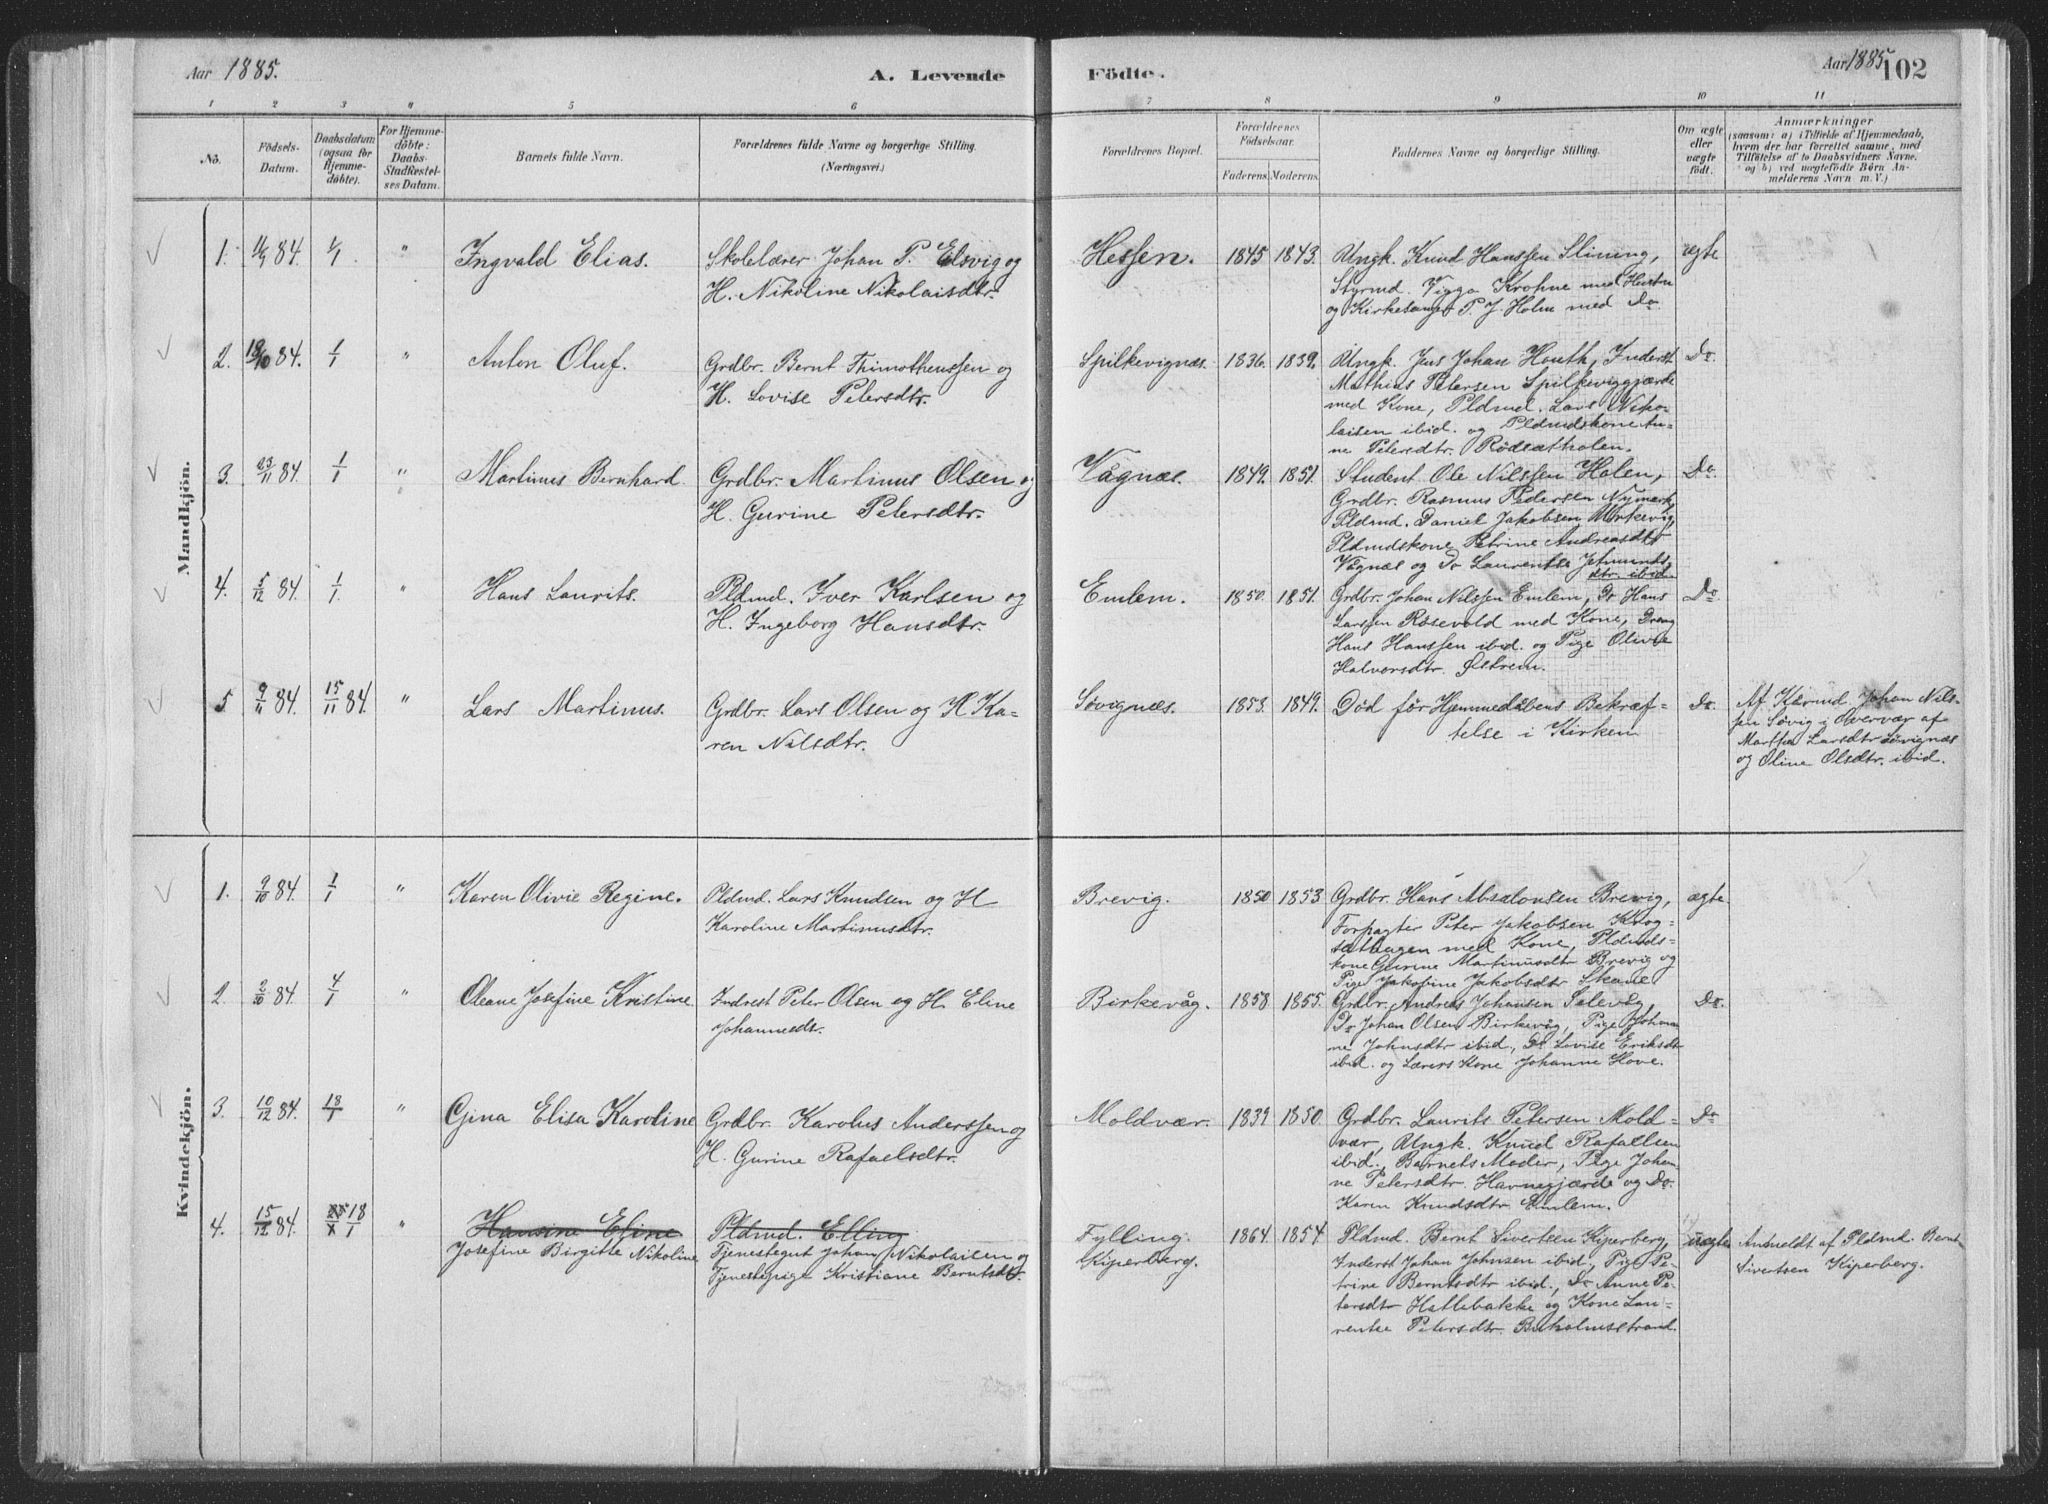 Aar 1885.
A. Levende
Födte.
Aar 1885
102
1 2 3 4 5 6
7 8 9 10 11
No.
Födsels-
Datum.
Daabsdatum
(ogsaa for
Hjemme-
døbte).
For Hjemme-
døbte:
Daabs-
Stadfæstel-
ses Datum.
Barnets fulde Navn.
Forældrenes fulde Navne og borgerlige Stilling.
(Næringsvei.)
Forældrenes Bopæl.
Forældrenes
Födselsaar.
Faderens. Moderens.
Faddernes Navne og borgerlige Stilling.
Om ægte
eller
uægte
födt.
Anmærkninger
(saasom: a) i Tilfælde af Hjemmedaab,
hvem der har forrettet samme, med
Tilföielse af to Daabsvidners Navne,
og b) ved uægtefödte Börn An-
melderens Navn m. V.)
Mandkjön.
1. 84. 1/1 " Ingvald Elias.
Skolelærer Johan P. Elsvig og
H. Nikoline Nikolaisdtr.
Hessen. 1845 1843.
Ungk. Knud Hanssen Slining,
Styrmd. Viggo Krohne med Hustru
og Kirkesanger P. J. Holm med Do.
ægte
2. 84. 1/1 " Anton Oluf.
Grdbr. Bernt Thimotheussen og
H. Lovise Petersdtr.
Spilkevignæs. 1836. 1839.
Ungk. Jens Johan Houth, Inderst
Mathias Petersen Spilkeviggjærde
med Kone, Pldmd. Lars Niko-
laisen ibid. og Pldmdskone An-
ne Petersdtr. Rödsætholen.
Do.
3. 23/11 84. 1/1 " Martinus Bernhard.
Grdbr. Martinus Olsen og
H. Gurine Petersdtr.
Vågnæs. 1849. 1851.
Student Ole Nilssen Holen,
Grdbr. Rasmus Pedersen Nymark,
Pldmd. Daniel Jakobsen Mørkevig,
Pldmdskone Petrine Andreasdtr
Vågnæs og Do Laurentse Jetmunds-
dtr. ibid.
Do.
4. 5/12 84. 1/1. " Hans Laurits.
Pldmd. Iver Karlsen og
H. Ingeborg Hansdtr.
Emlem. 1850. 1851.
Grdbr. Johan Nilssen Emlem, Do Hans
Larssen Røsevold med Kone, Dreng
Hans Hanssen ibid. og Pige Olivie
Halvorsdtr. Østrem.
Do.
5 9/11 84. 15/11 84. " Lars Martinus.
Grdbr. Lars Olsen og H Ka-
ren Nilsdtr.
Søvignæs. 1853. 1849.
Död för Hjemmedåbens Bekræf-
telse i Kirken
Do.
Af Kårmd Johan Nils-
sen Søvig i Overvær af
Marthe Larsdtr Søvignæs
og Oline Olsdtr. ibid.
Kvindekjön.
1. 9/10 84. 1/1 " Karen Olivie Regine.
Pldmd. Lars Knudsen og H
Karoline Martinusdtr.
Brevig. 1850 1853
Grdbr. Hans Absalonsen Brevig,
Forpagter Peter Jakobsen Krog-
sæthagen med Kone, Pldmds-
kone Gurine Martinusdtr Brevig og
Pige Jakobine Jakobsdtr Skane
ægte
2. 2/10 84. 4/1 " Oleane Josefine Kristine
Indrest Peter Olsen og H. Eline
Johannesdtr.
Birkevåg. 1858 1855.
Grdbr. Andreas Johansen Selevåg,
Do Johan Olsen Birkevåg, Pige Johan-
ne Johnsdtr ibid, Do Lovise Eriksdtr
ibid. og Lærers Kone Johanne Hove.
Do.
3. 10/12 84. 18/1 " Gina Elisa Karoline
Grdbr. Karolus Anderssen og
H. Gurine Rafaelsdtr.
Moldvær. 1839 1850
Grdbr. Laurits Petersen Mold-
vær, Ungk. Knud Rafaelsen
ibid., Barnets Moder, Pige Johan-
ne Petersdtr. Havnegjærde og Do.
Karen Knudsdtr Emlem.
Do
4. 15/12 84. 18/1 " Hansine Eline
Josefine Birgitte Nikoline
Pldmd. Elling
Tjenestegut Johan Nikolaisen og
Tjenestepige Kristiane Berntsdtr.
Fylling.
Kiperberg.
1864. 1854
Pldmd. Bernt Sivertsen Kiperberg,
Inderst Johan Johnsen ibid., Pige Pe-
trine Berntsdtr ibid., Do Anne Pe-
tersdtr Hatlebakke og Kone Lau-
rentse Petersdtr. Bukholmstrand.
uægte
Anmeldt af Pldmd. Bernt
Sivertsen Kiperberg.